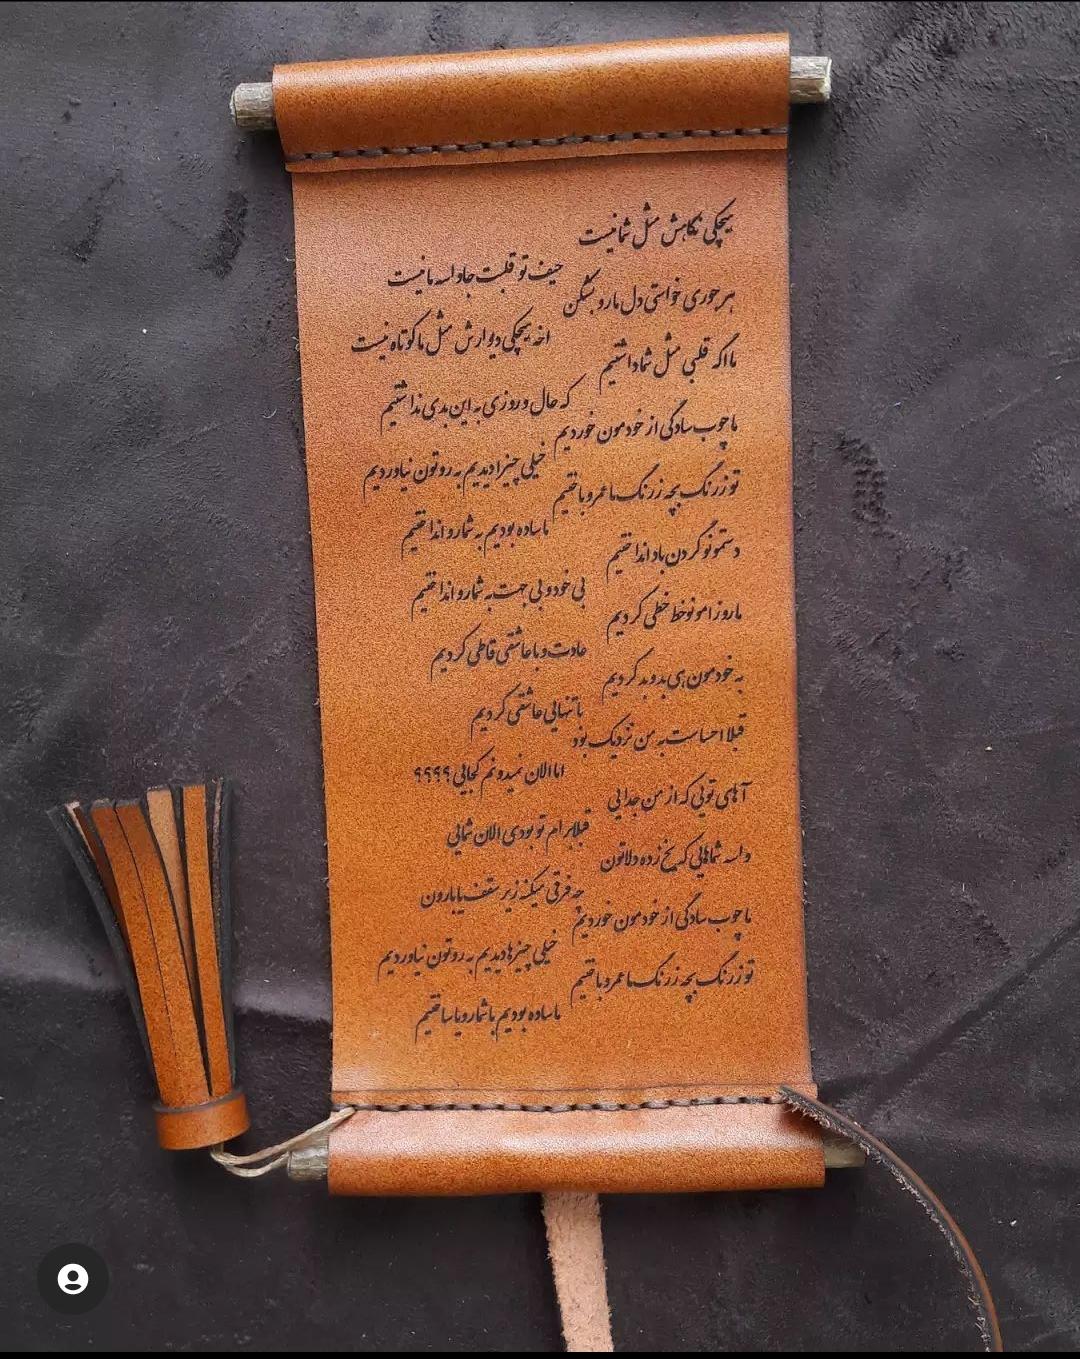 هیچکی نگاهش مثل شما نیست
حیف تو قلبت جا واسه ما نیست
هر جوری خواستی دل مارو بشکن
اخه هیچکی دیوارش مثل ما کوتاه نیست
ما اگه قلبی مثل شما داشتیم
که حال و روزی به این بدی نداشتیم
ما چوب سادگی از خودمون خوردیم
خیلی چیزا دیدیم به روتون نیاوردیم
تو زرنگ بچه زرنگ ما عمرو باختیم
ما ساده بودیم به شما رو انداختیم
دستمونو گردن باد انداختیم
بی خود و بی جهت به شما رو انداختیم
ما روزامونو خط خطی کردیم
عادت و با عاشقی قاطی کردیم
به خودمون هی بد و بد کردیم
با تنهایی عاشقی کردیم
قبلا احساست به من نزدیک بود
اما الان نمیدونم کجایی ؟؟؟؟
آهای تویی که از من جدایی
قبلا برام تو بودی الان شمایی
واسه شماهایی که یخ زده دلاتون
چه فرقی میکنه زیر سقف یا بارون
ما چوب سادگی از خودمون خوردیم
خیلی چیزها دیدیم به روتون نیاوردیم
تو زرنگ بچه زرنگ ما عمرو باختیم
ما ساده بودیم با شما رویا ساختیم